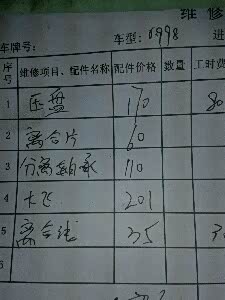 维修
车牌号: 车型: 0998 进
序号 维修项目、配件名称 配件价格 数量 工时费
1 压盘 170 80
2 离合片 60
3 分离轴承 110
4 大飞 201
5 离合线 35
6